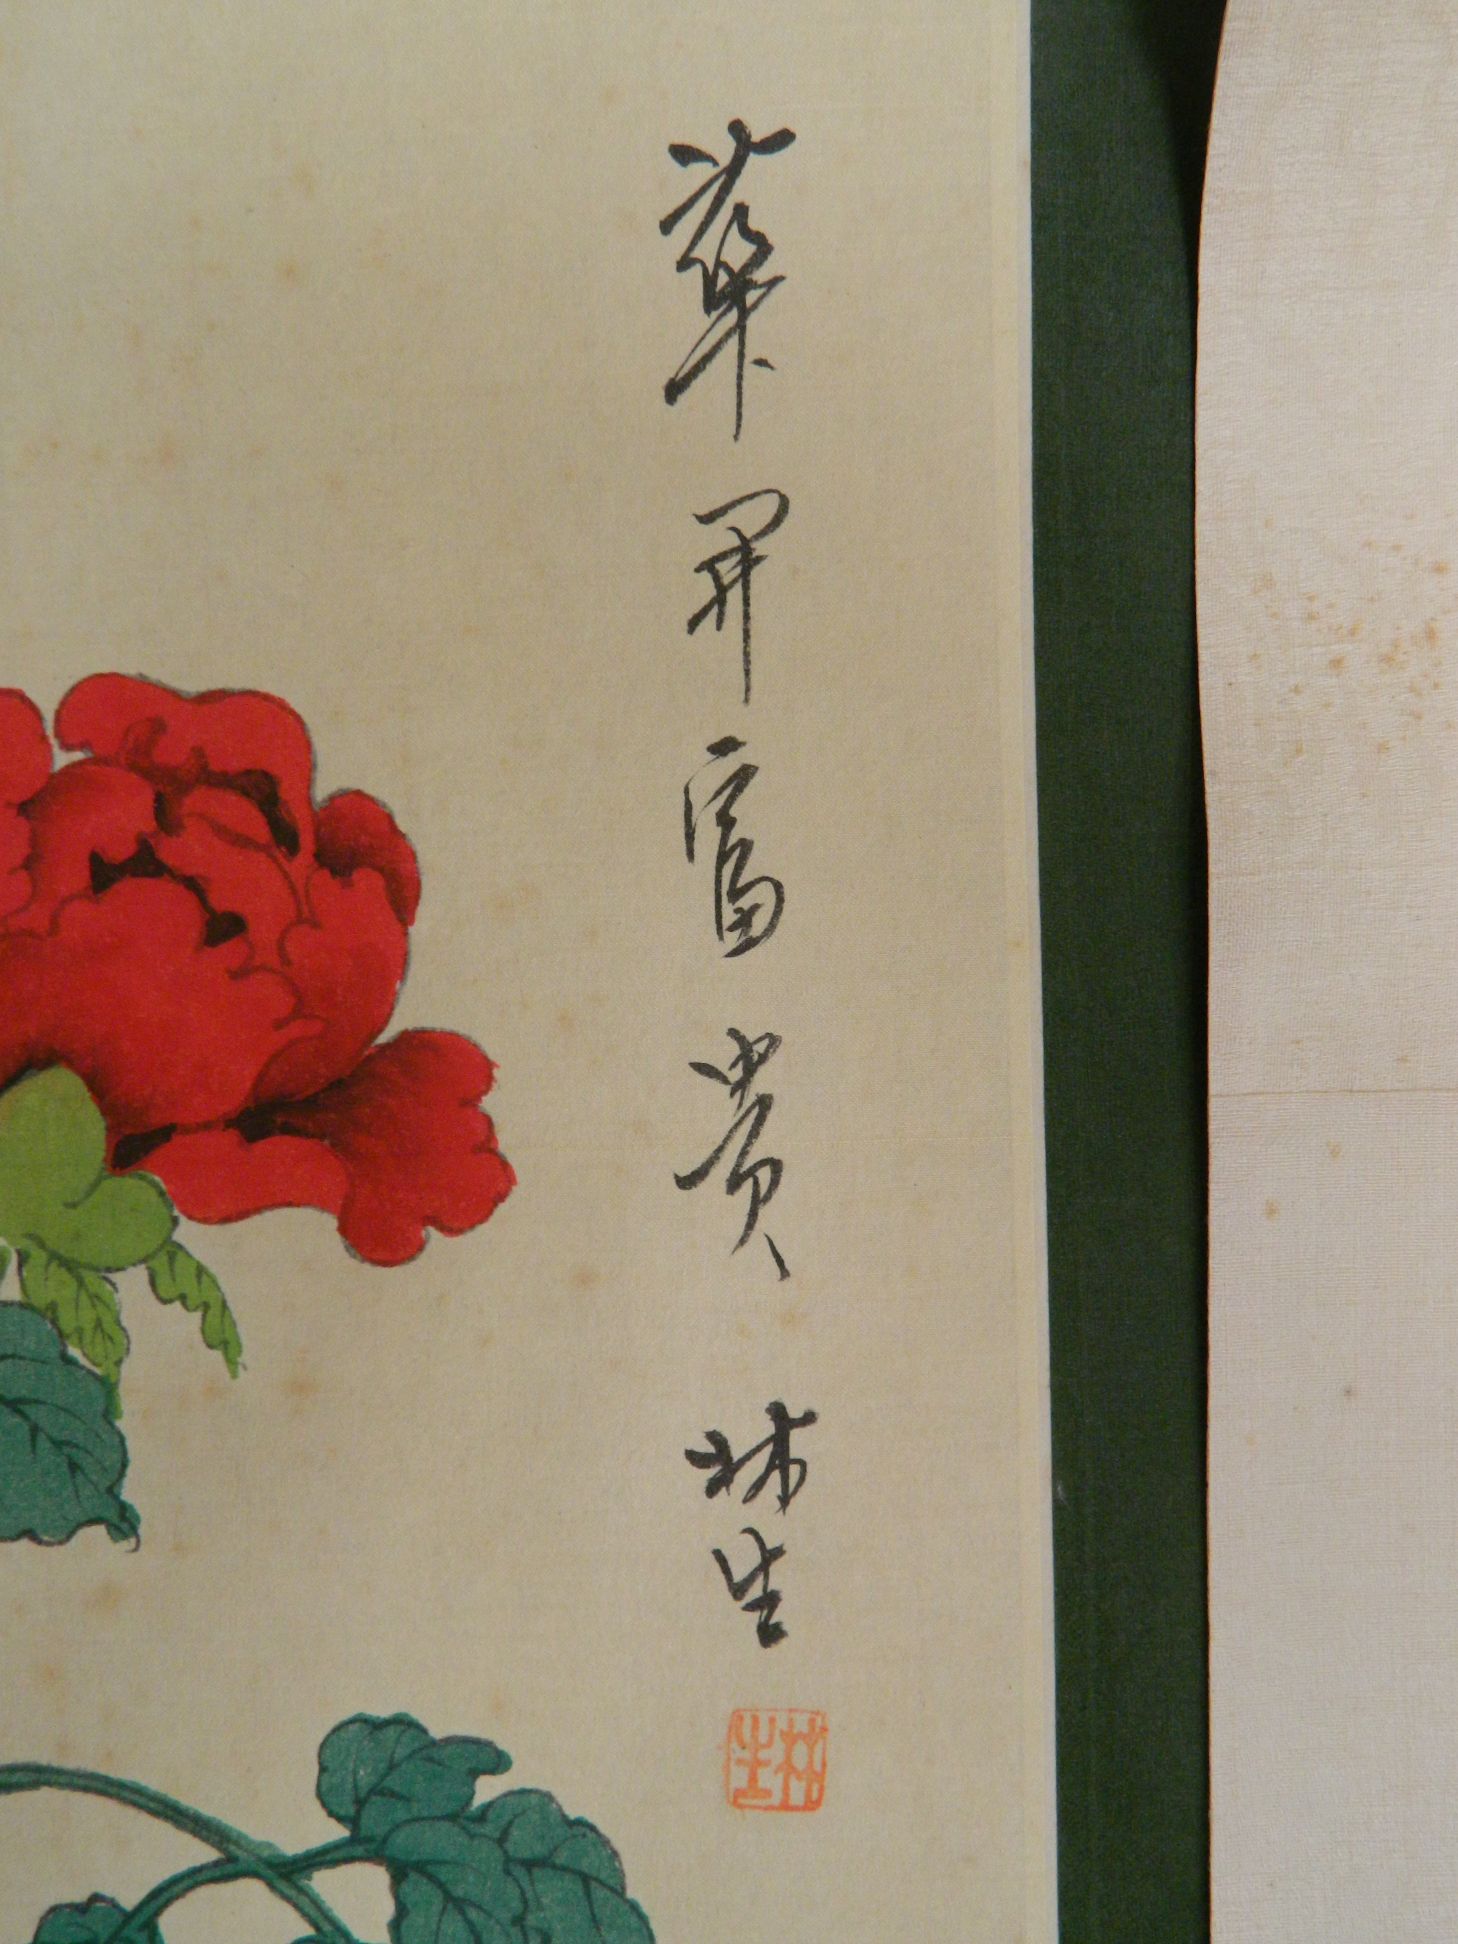 華開富貴 林生
林生